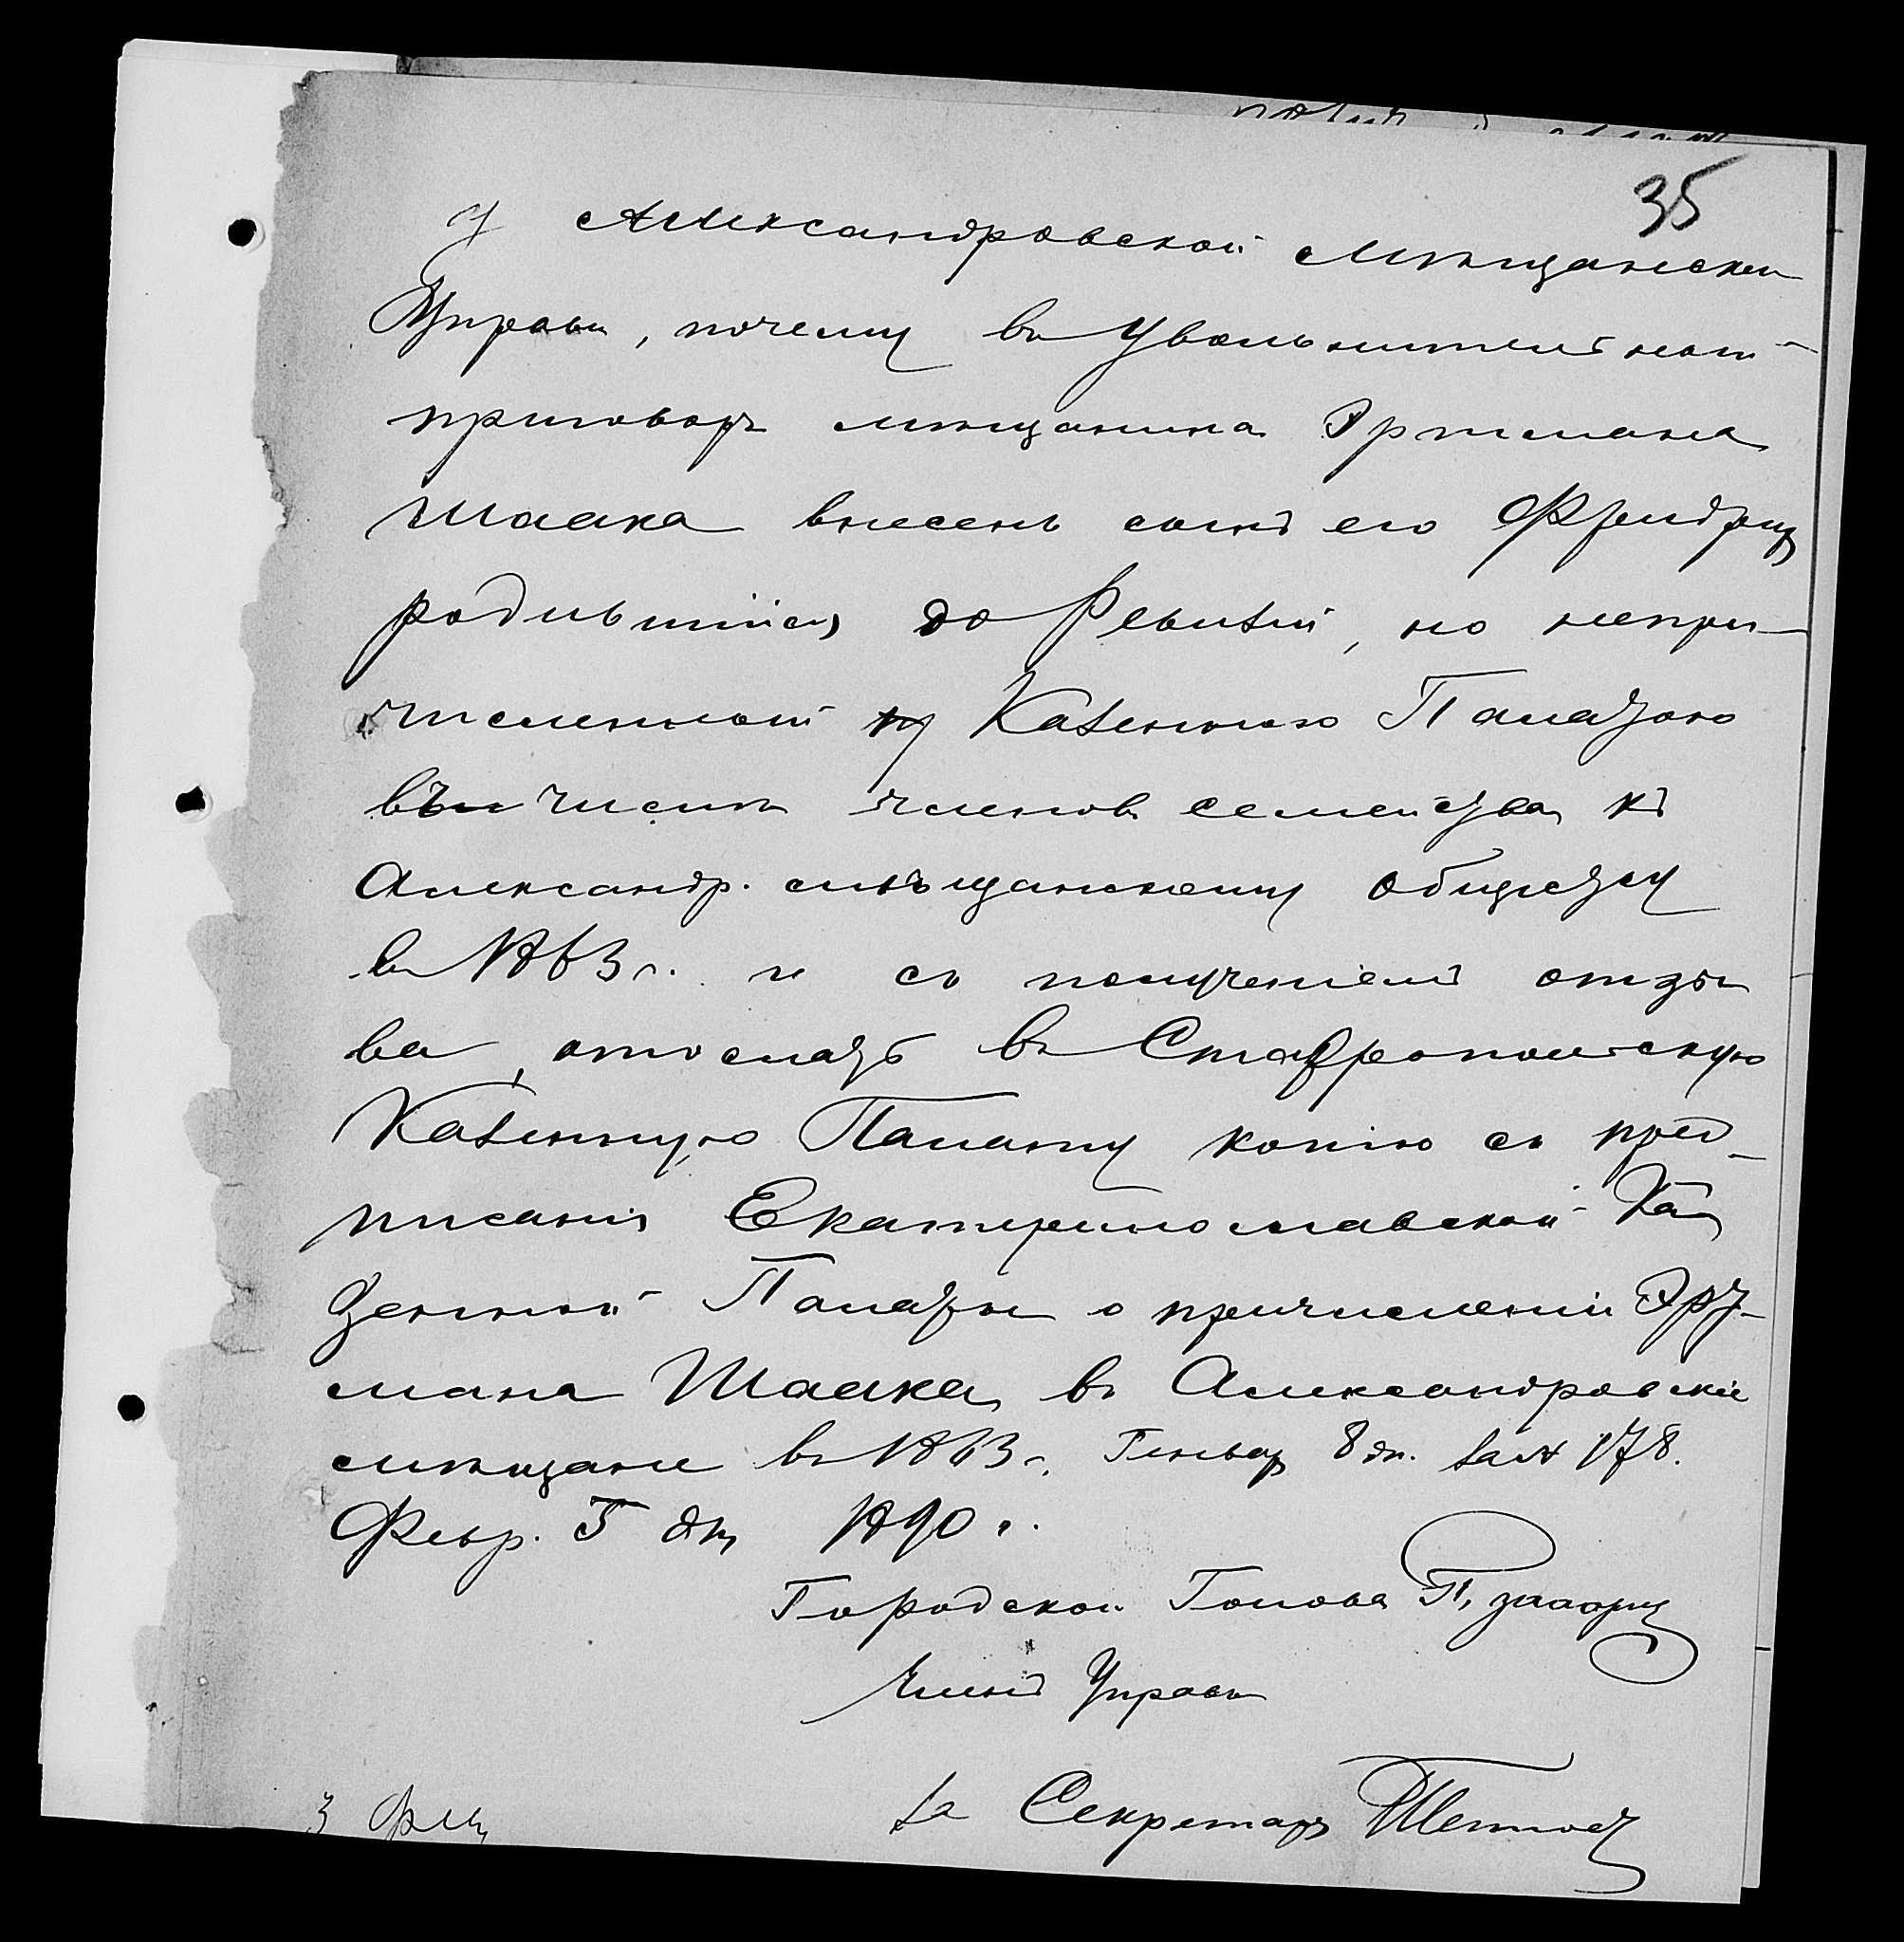 35
у Александровской Мѣщанской
Управы, почему въ Увольнительной
приговоръ мѣщанина Эртмана
Шаака внесенъ сынъ его Фридрих
родившійся до Ревизіи, но непри-
численный Казенною Палатою
въ числѣ членовъ семейства къ
Александр. мѣщанскому обществу
въ 1863 г. и съ полученіемъ отзы
ва, отослать въ Ставропольскую
Казенную Палату копію съ пред-
писанія Екатеринославской Ка
зенной Палаты о причисленіи Эрт-
мана Шаака въ Александровскіе
мѣщане въ 1863 г. Генваря 8 дн. за № 178.
Февр. 5 дня 1890 г.
Городской Голова
Членъ Управы
За Секретаря
3 Фев